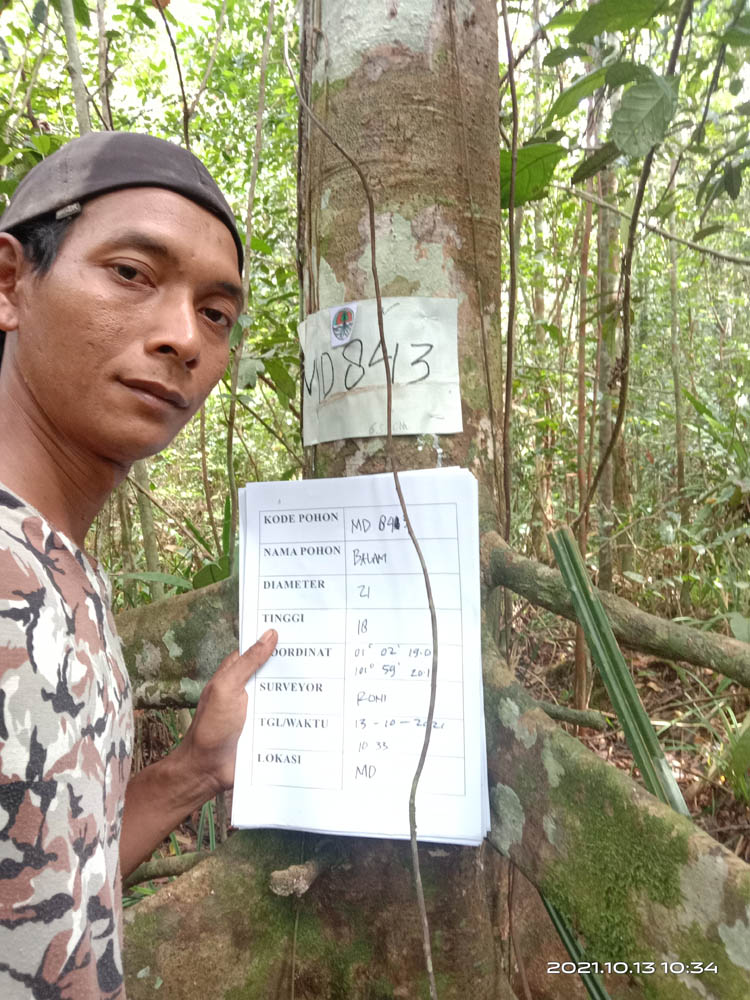 MD 843
KODE POHON MD 843
NAMA POHON BALAM
DIAMETER 21
TINGGI 18
COORDINAT 01° 02' 19.0
101° 59' 20.1
SURVEYOR RONI
TGL/WAKTU 13 - 10 - 2021
10 33
LOKASI MD
2021.10.13 10:34